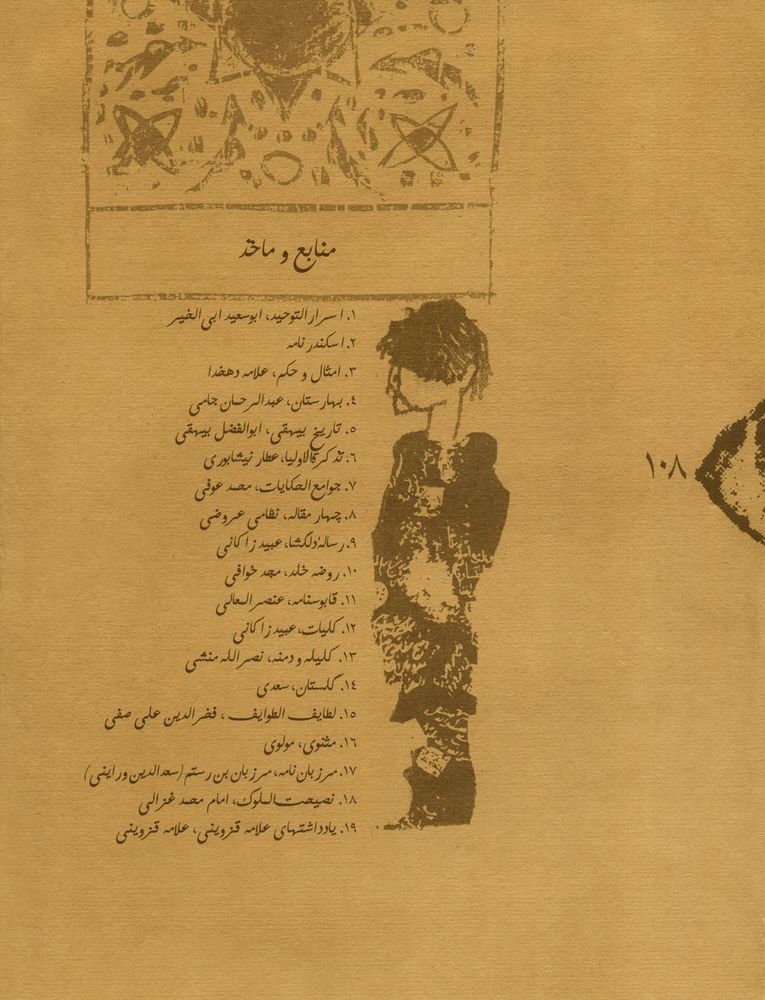 منابع و ماخذ
۱. اسرار التوحید، ابوسعید ابی الخیر
۲. اسکندرنامه
۳. امثال و حکم، علامه دهخدا
٤. بهارستان، عبدالرحمان جامی
٥. تاریخ بیهقی، ابوالفضل بیهقی
٦. تذکرةالاولیا، عطار نیشابوری
۷. جوامع الحکایات، محمد عوفی
۸. چهار مقاله، نظامی عروضی
۹. رسالهٔ دلگشا، عبید زاکانی
۱۰. روضه خلد، مجد خوافی
۱۱. قابوسنامه، عنصرالمعالی
۱۲. کلیات، عبید زاکانی
۱۳. کلیله و دمنه، نصرالله منشی
۱٤. گلستان، سعدی
۱٥. لطایف الطوایف، فخرالدین علی صفی
۱٦. مثنوی، مولوی
۱۷. مرزبان نامه، مرزبان بن رستم (سعدالدین وراینی)
۱۸. نصیحت الملوک، امام محمد غزالی
۱۹. یادداشتهای علامه قزوینی، علامه قزوینی
۱۰۸